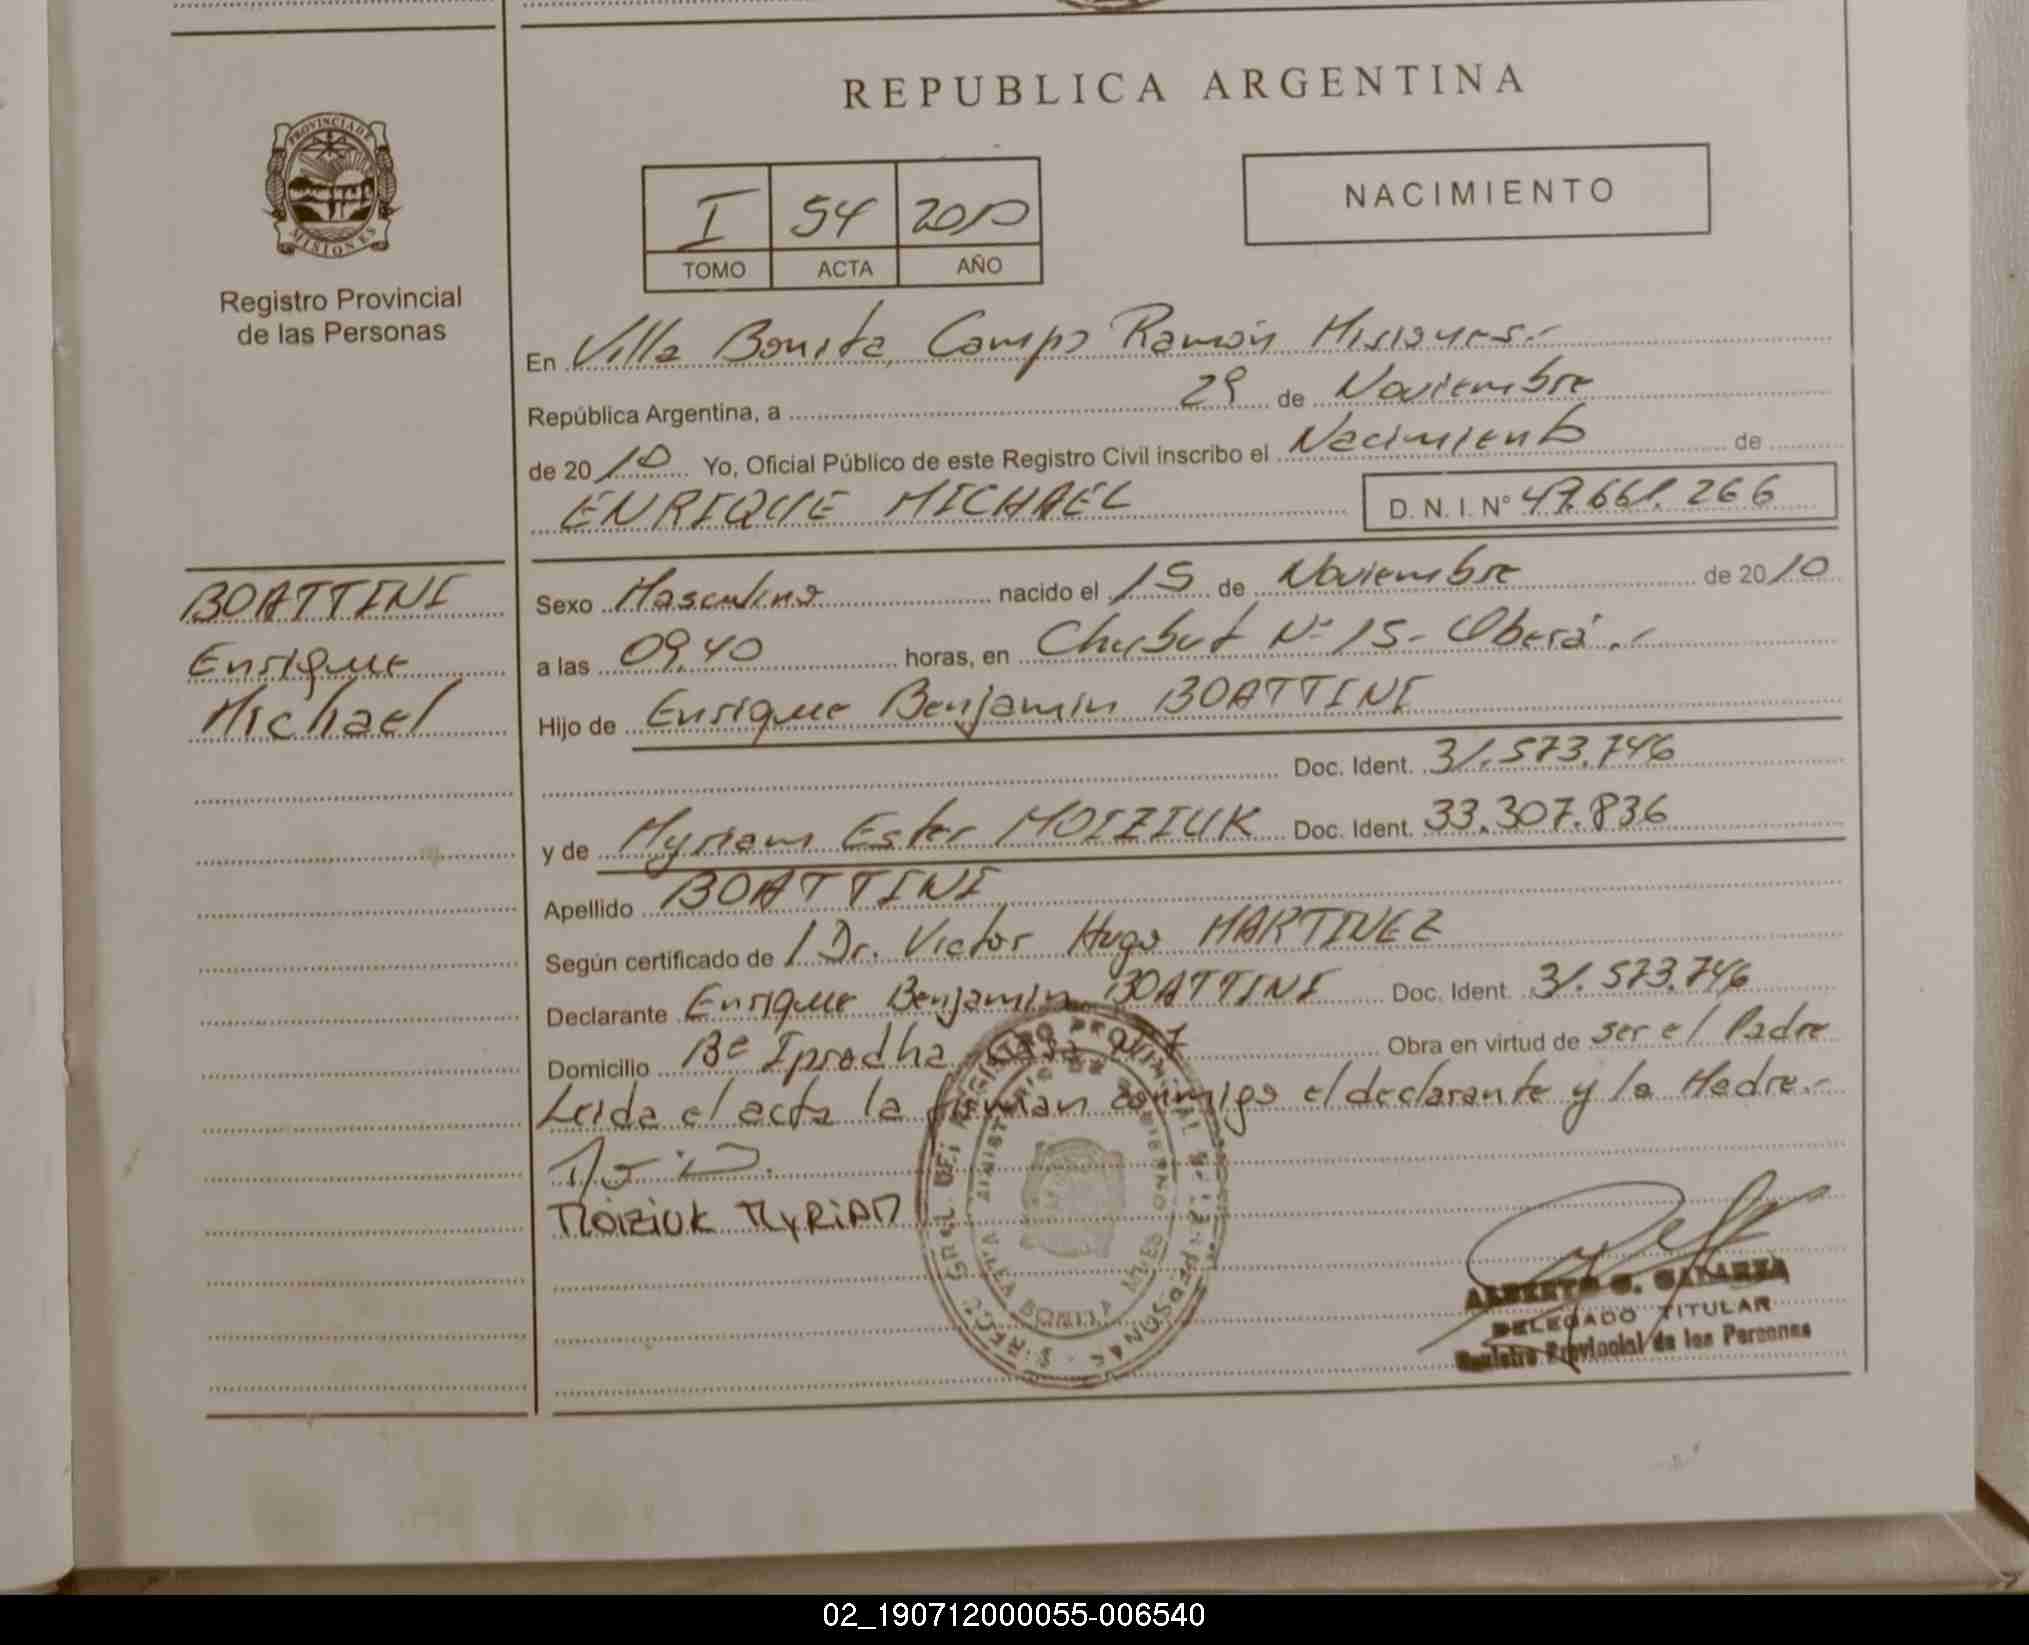 REPUBLICA ARGENTINA
PROVINCIA DE
MISIONES
Registro Provincial
de las Personas
I 54 2010
TOMO ACTA AÑO
NACIMIENTO
En Villa Bonita, Campo Ramón Misiones.-
República Argentina, a 29 de Noviembre
de 2010 Yo, Oficial Público de este Registro Civil inscribo el Nacimiento de
ENRIQUE MICHAEL D. N. I. N° 49.661.266
BOATTINI
Enrique
Michael
Sexo Masculino nacido el 15 de Noviembre de 2010
a las 09,40 horas, en Chubut N° 15- Oberá.-
Hijo de Enrique Benjamin BOATTINI
Doc. Ident. 31.573.746
y de Myriam Ester MOIZIUK Doc. Ident. 33.307.836
Apellido BOATTINI
Según certificado de / Dr. Victor Hugo MARTINEZ
Declarante Enrique Benjamin BOATTINI Doc. Ident. 31.573.746
Domicilio B° Iprodha Obra en virtud de ser el Padre
Leida el acta la firman conmigo el declarante y la Madre.-
MOIZIUK MYRIAM
DELEGADO TITULAR
Registro Provincial de las Personas
02_190712000055-006540